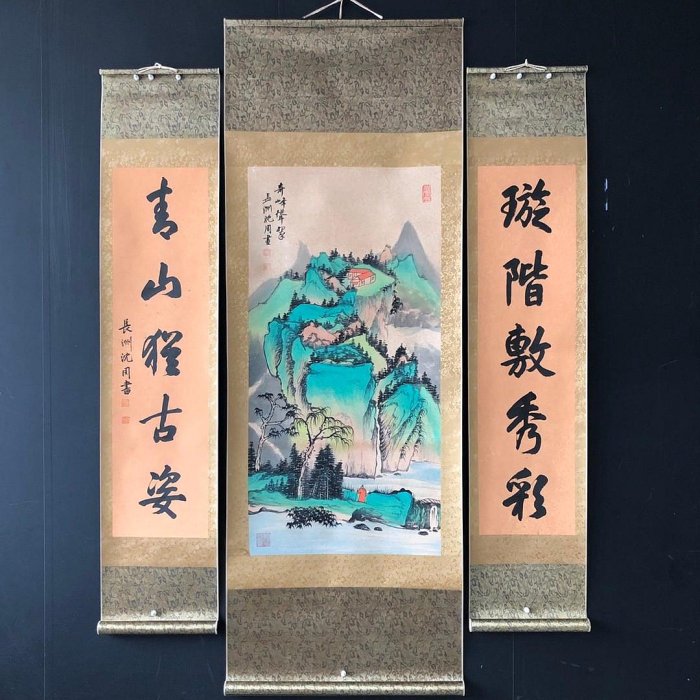 璇階敷秀彩
奇峰聳翠
長洲沈周畫
青山猶古姿
長洲沈周書